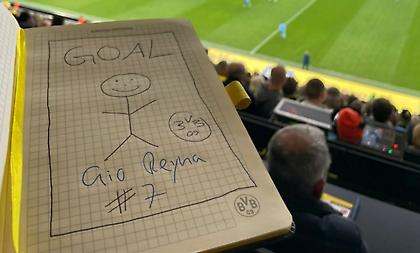 GOAL
BVB
09
Gio Reyna
#7
BVB
09